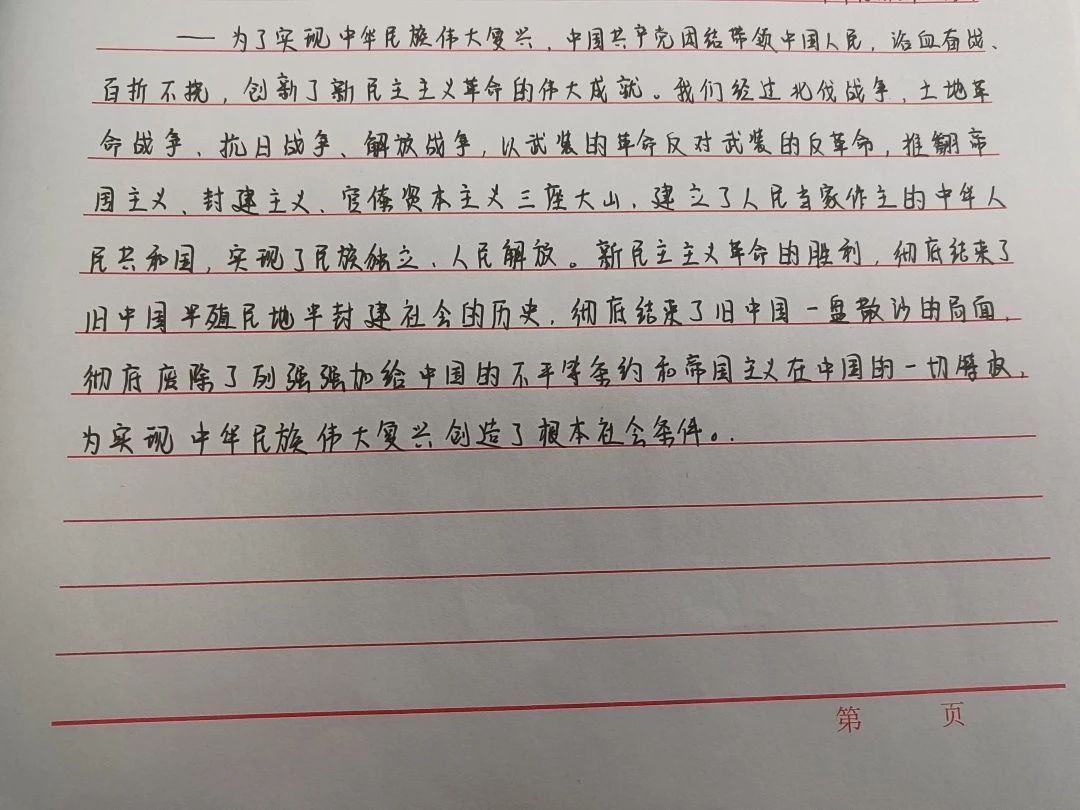 ——为了实现中华民族伟大复兴，中国共产党团结带领中国人民，浴血奋战、
百折不挠，创新了新民主主义革命的伟大成就。我们经过北伐战争，土地革
命战争、抗日战争、解放战争，以武装的革命反对武装的反革命，推翻帝
国主义、封建主义、官僚资本主义三座大山，建立了人民当家作主的中华人
民共和国，实现了民族独立、人民解放。新民主主义革命的胜利，彻底结束了
旧中国半殖民地半封建社会的历史，彻底结束了旧中国一盘散沙的局面，
彻底废除了列强强加给中国的不平等条约和帝国主义在中国的一切特权，
为实现中华民族伟大复兴创造了根本社会条件。.
第 页